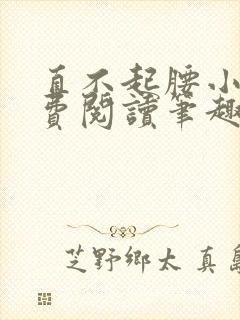 直不起腰小
費閱讀筆趣
芝野鄉太 真島